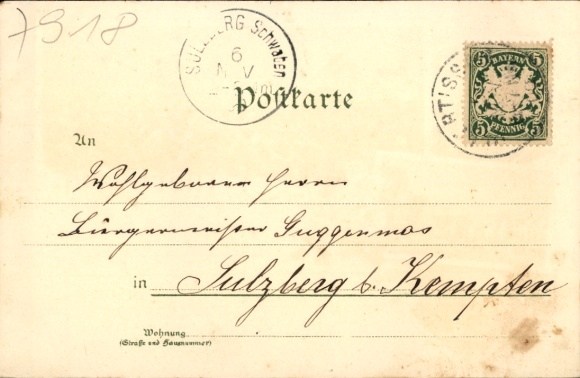 7918
SULZBERG Schwaben
6
NOV
BAYERN
5 5
5 5
PFENNIG
Postkarte
An
Wohlgeboren Herrn
Bürgermeister Guggenmos
in Sulzberg b. Kempten
Wohnung
(Straße und Hausnummer)